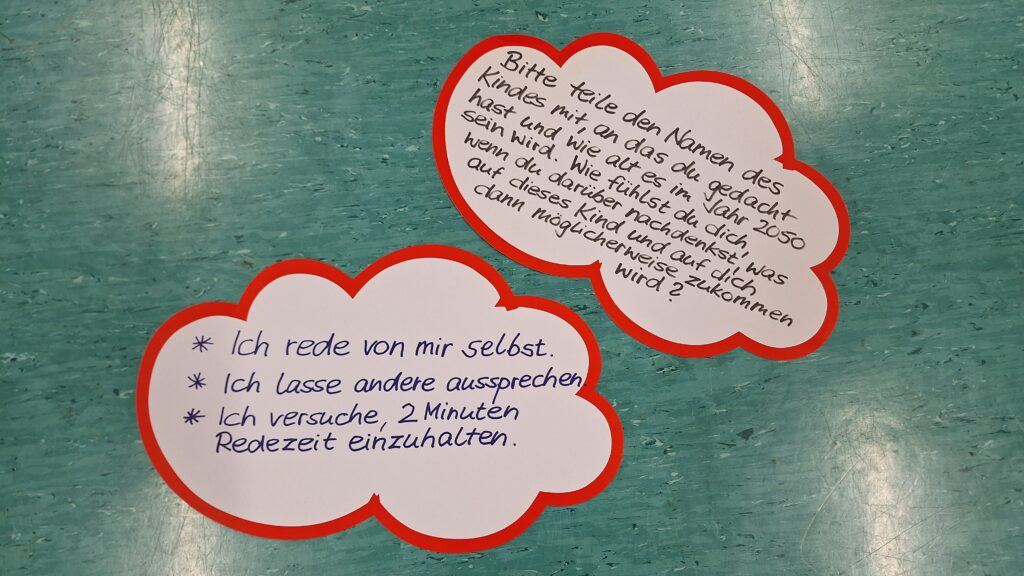 Bitte teile den Namen des
Kindes mit, an das du gedacht
hast und wie alt es im Jahr 2050
sein wird. Wie fühlst du dich,
wenn du darüber nachdenkst, was
auf dieses Kind und auf dich
dann möglicherweise zukommen
wird?
* Ich rede von mir selbst.
* Ich lasse andere aussprechen
* Ich versuche, 2 Minuten
Redezeit einzuhalten.